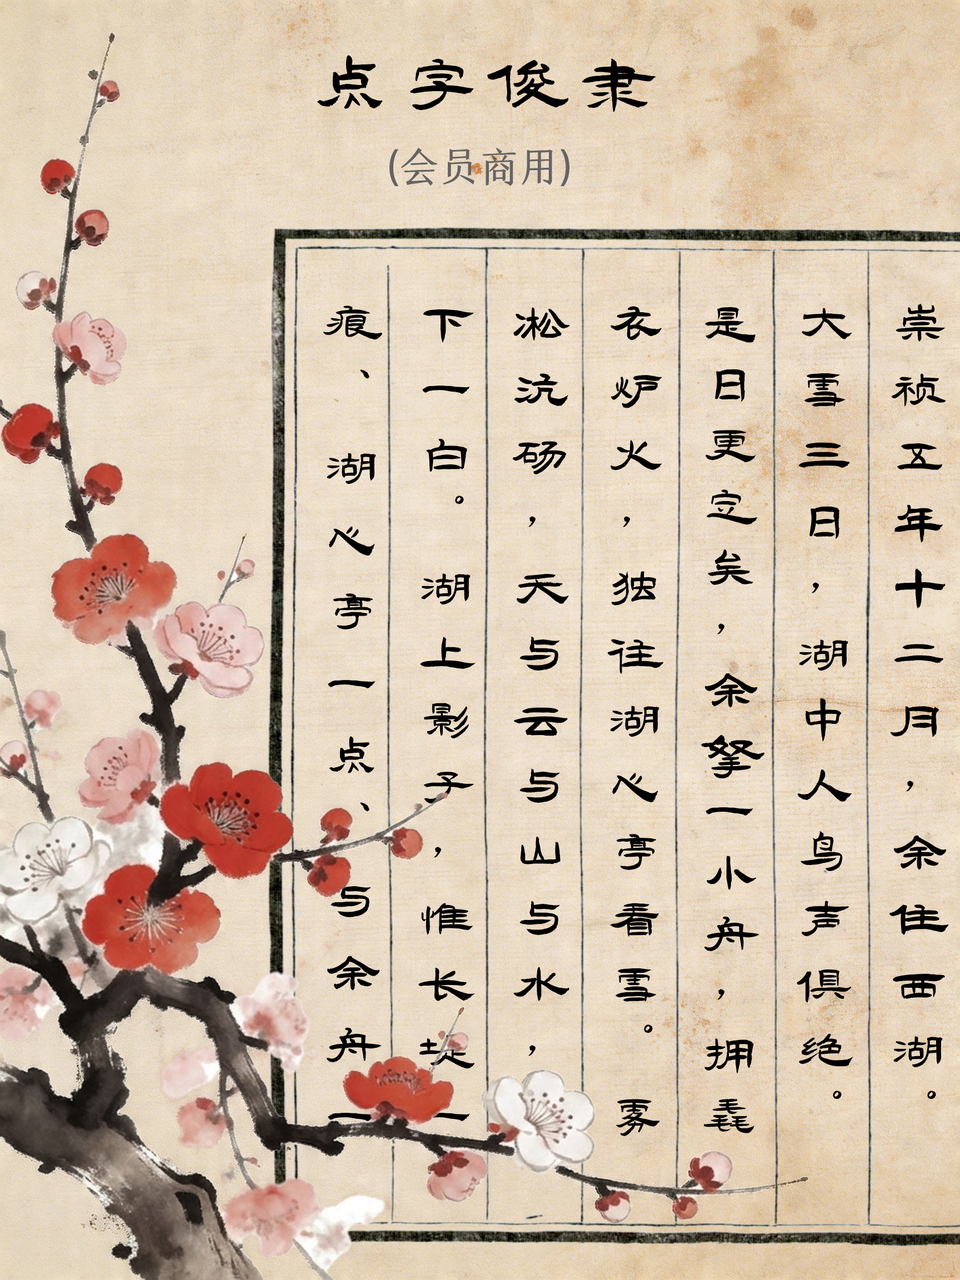 点字俊隶
(会员商用)
崇祯五年十二月，余住西湖。
大雪三日，湖中人鸟声俱绝。
是日更定矣，余拏一小舟，拥毳
衣炉火，独往湖心亭看雪。雾
凇沆砀，天与云与山与水，
下一白。湖上影子，惟长堤一
痕、湖心亭一点、与余舟一